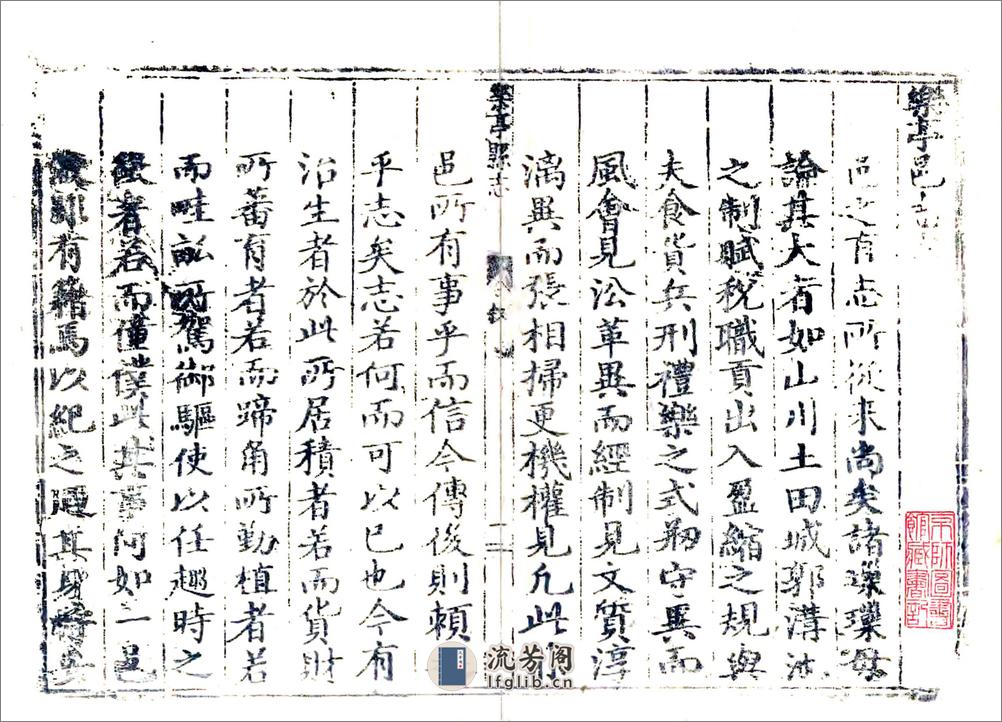 樂亭邑志
邑之有志所從来尚矣諸瑣璅毋
論其大者如山川土田城郭溝池
之制賦稅職貢出入盈縮之規與
夫食貨兵刑禮樂之式初守異而
風會見沿革異而經制見文質淳
漓異而張相掃更機權見凡此
邑所有事乎而信今傳後則頼
乎志矣志若何而可以已也今有
治生者於此所居積者若而貨財
所蕃育者若而蹄角所勤植者若
而畦畝所駕御驅使以任趨時之
者若而僮僕此其事何如一邑
有籍焉以紀之
樂亭縣志
叙
一二
京師圖書館藏書記
流芳阁
lfglib.cn